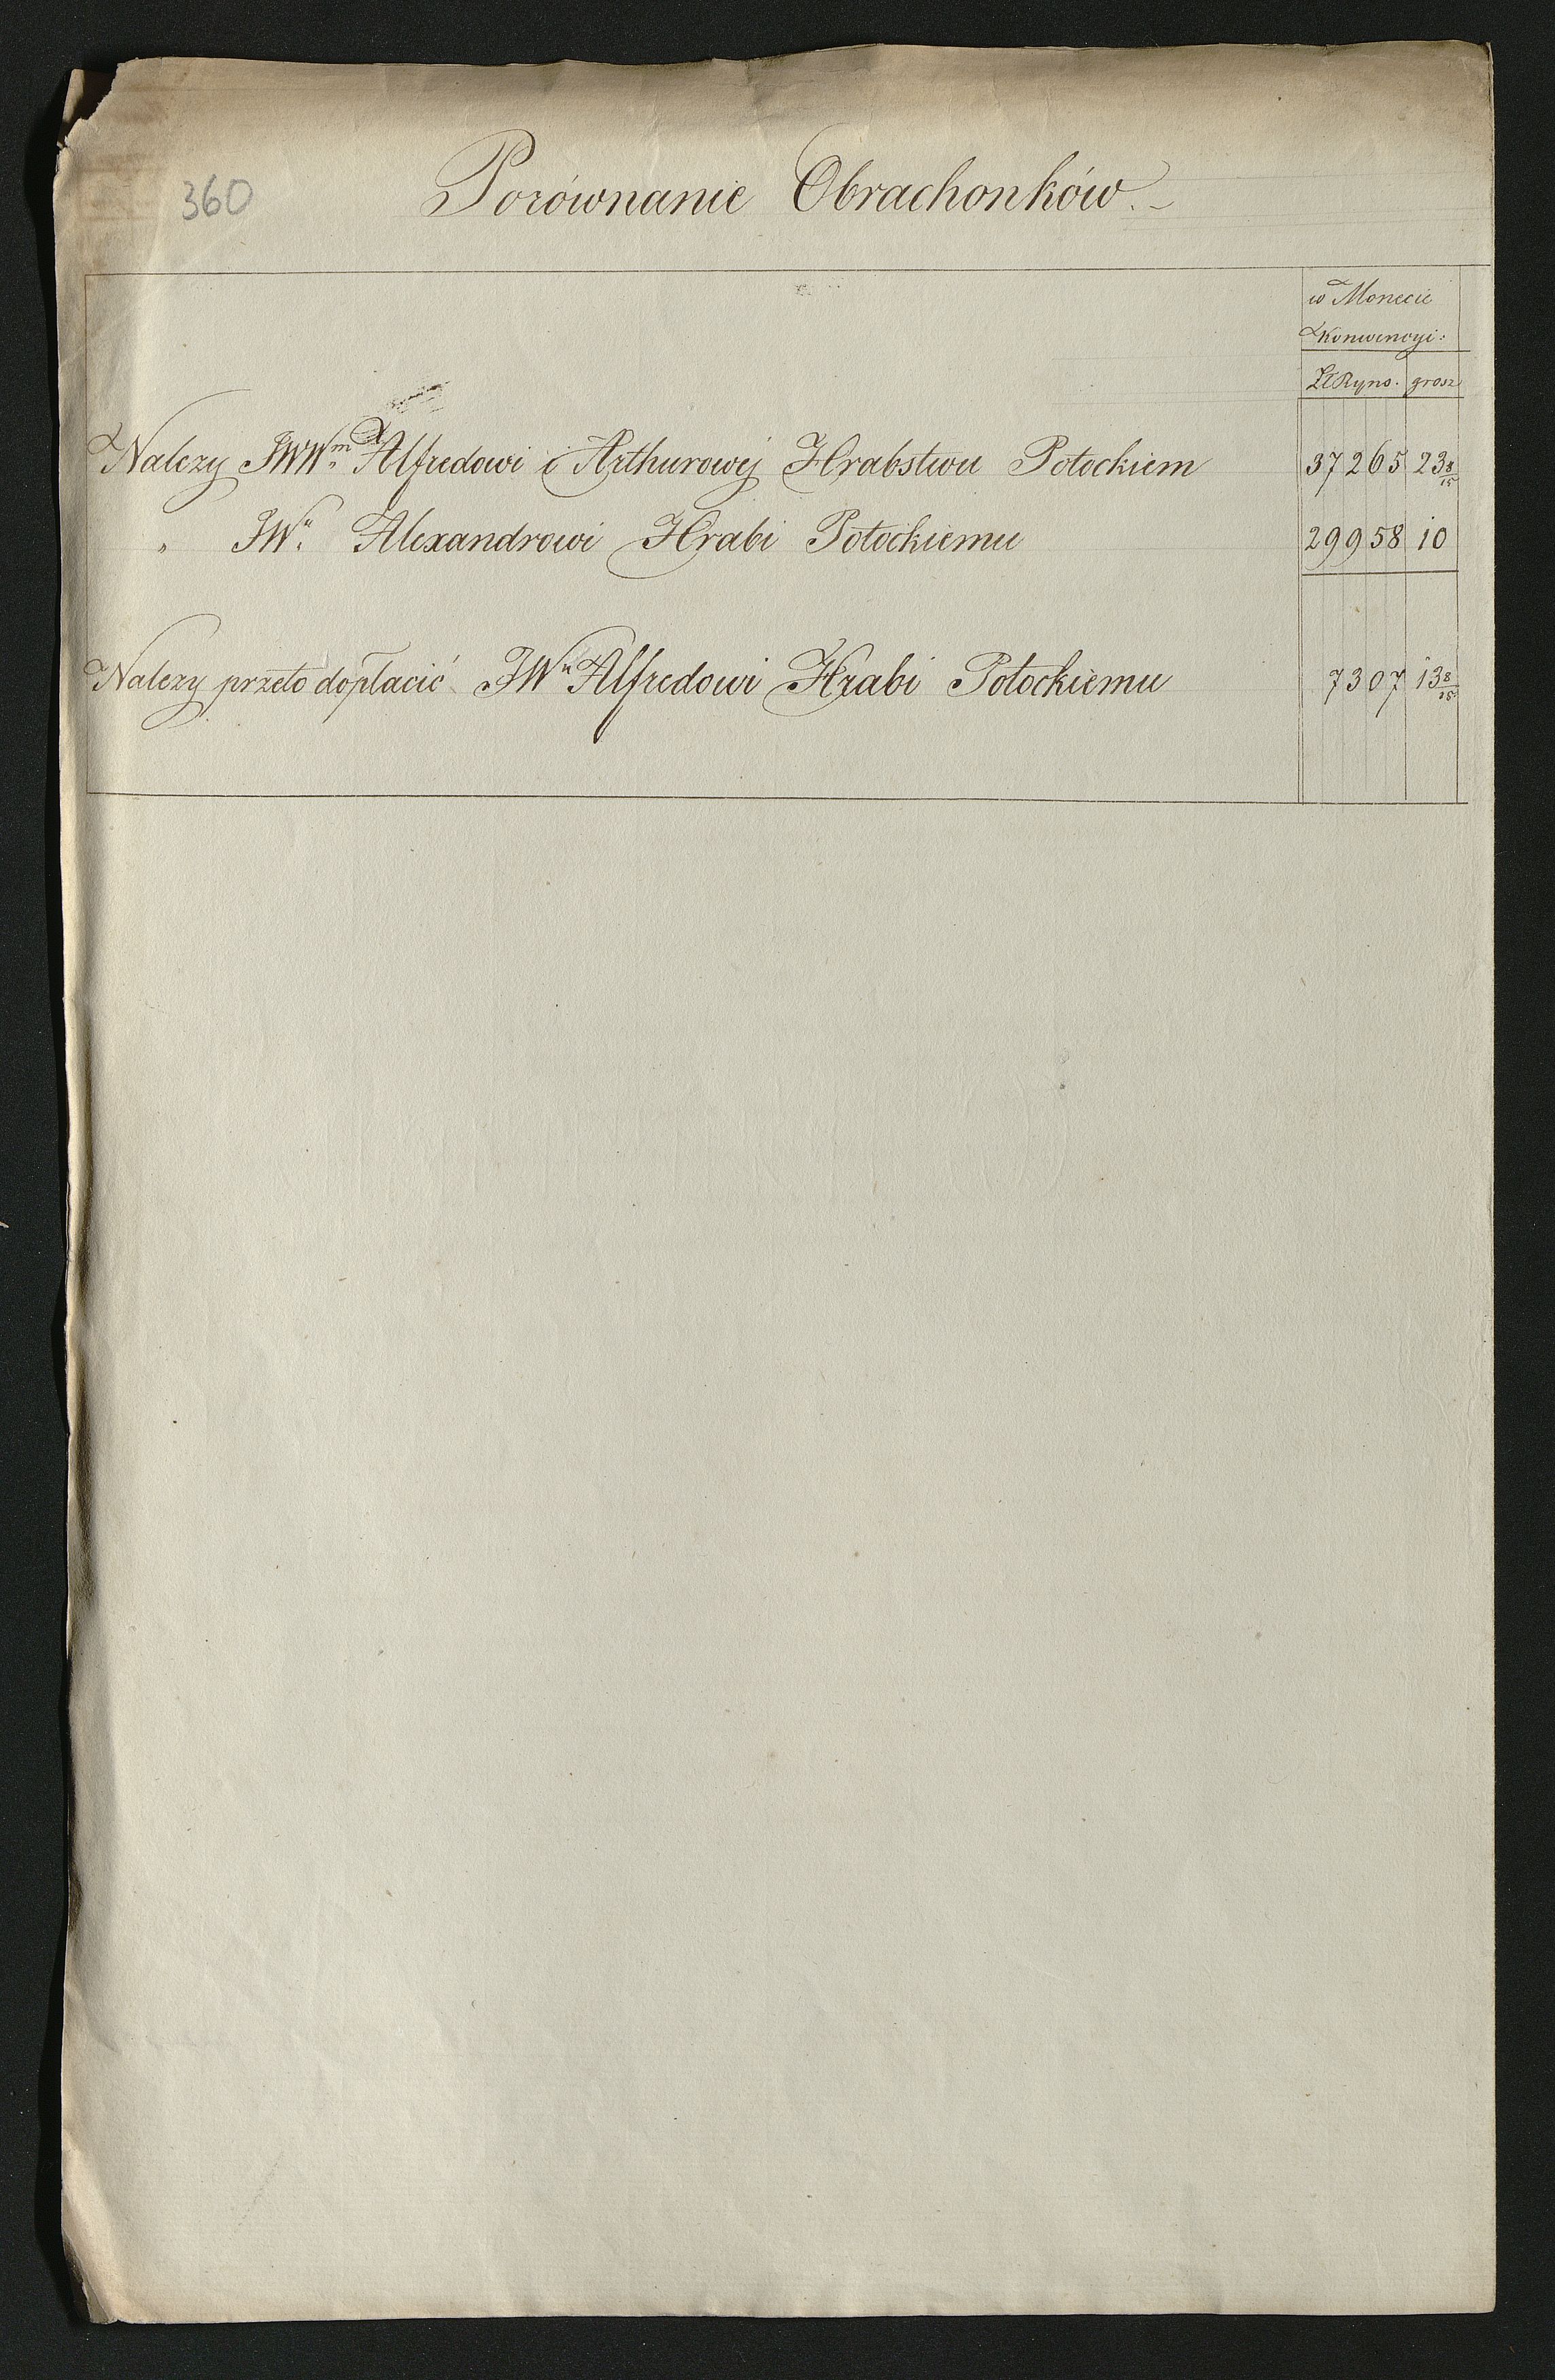 360
Porównanie Obrachonków.
w Monecie
Konwencyi:
ZłRyns. grosz
Nalezy JWW<sup>m</sup> Alfredowi i Arthurowéj Hrabstwu Potockiem 37265 23 8/15
" JW<sup>u</sup> Alexandrowi Hrabi Potockiemu 29958 10
Nalezy przeto dopłacić JW<sup>u</sup> Alfredowi Hrabi Potockiemu 7307 13 8/15